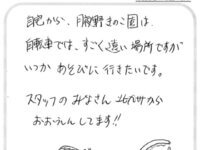 自宅から、月形野きのこ園は、
自転車では、すごく遠い場所ですが
いつか あそびに 行きたいです。
スタッフの みなさん から
おおえんしてます!!